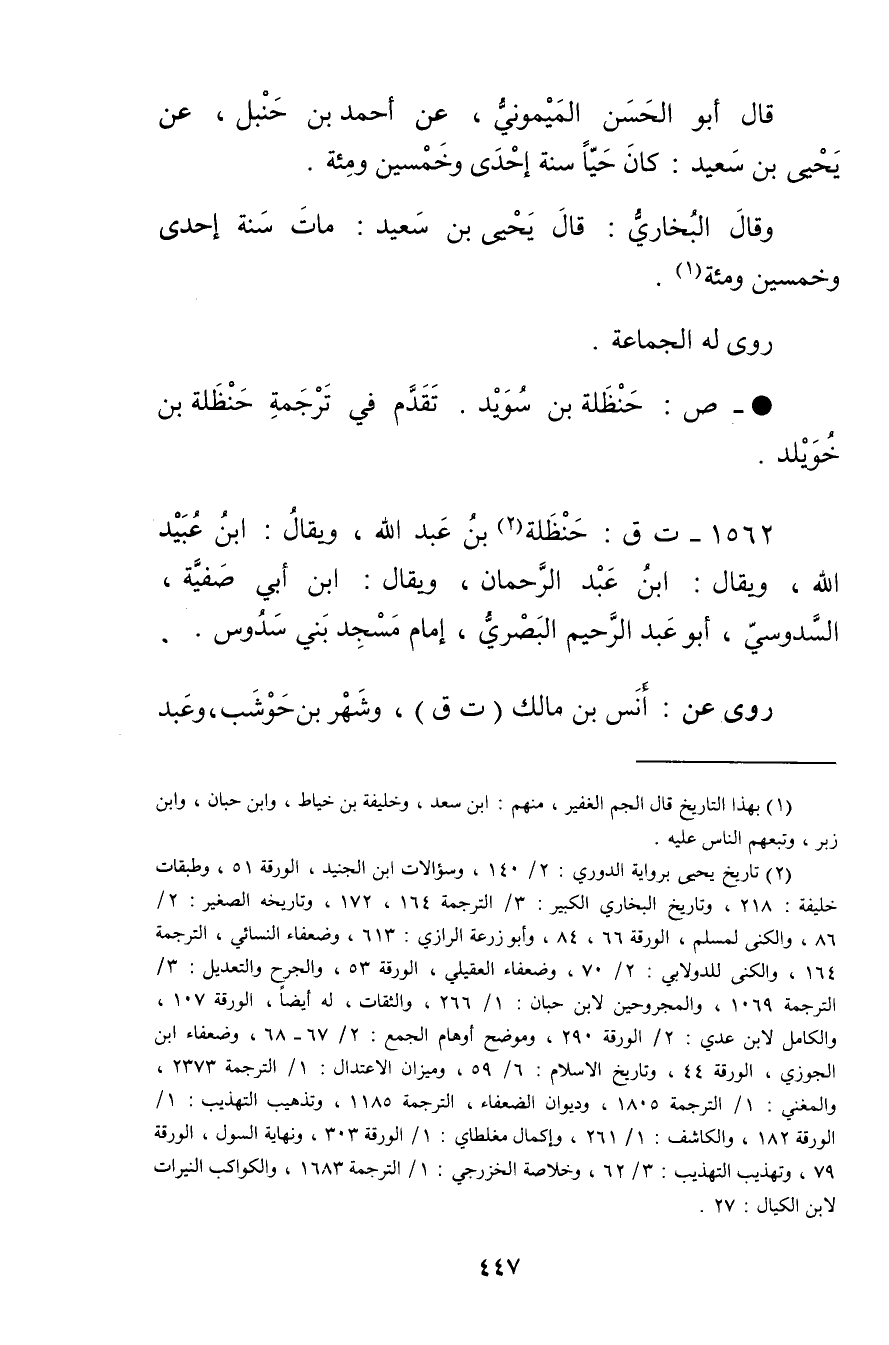 قال أبو الحَسَن المَيْمونيُّ ، عن أحمد بن حَنْبل ، عن
يَحْيى بن سَعيد : كانَ حَيّاً سنة إحْدَى وخَمْسين ومِئة .
وقالَ البُخاريُّ : قالَ يَحْيى بن سَعيد : ماتَ سَنة إحدى
وخمسين ومئة(١) .
روى له الجماعة .
● ـ ص : حَنْظَلة بن سُوَيْد . تَقَدَّم في تَرْجَمةِ حَنْظَلة بن
خُوَيْلد .
١٥٦٢ ـ ت ق : حَنْظَلة(٢) بنُ عَبد الله ، ويقالُ : ابنُ عُبَيْد
الله ، ويقال : ابنُ عَبْد الرَّحمان ، ويقال : ابن أبي صَفيَّة ،
السَّدوسيّ ، أبو عَبد الرَّحيم البَصْريُّ ، إمام مَسْجِد بَني سَدُوس .
روى عن : أَنَس بن مالك ( ت ق ) ، وشَهْر بن حَوْشَب، وعَبد
(١) بهذا التاريخ قال الجم الغفير ، منهم : ابن سعد ، وخليفة بن خياط ، وابن حبان ، وابن
زبر ، وتبعهم الناس عليه .
(٢) تاريخ يحيى برواية الدوري : ٢/ ١٤٠ ، وسؤالات ابن الجنيد ، الورقة ٥١ ، وطبقات
خليفة : ٢١٨ ، وتاريخ البخاري الكبير : ٣/ الترجمة ١٦٤ ، ١٧٢ ، وتاريخه الصغير : ٢/
٨٦ ، والكنى لمسلم ، الورقة ٦٦ ، ٨٤ ، وأبو زرعة الرازي : ٦١٣ ، وضعفاء النسائي ، الترجمة
١٦٤ ، والكنى للدولابي : ٢/ ٧٠ ، وضعفاء العقيلي ، الورقة ٥٣ ، والجرح والتعديل : ٣/
الترجمة ١٠٦٩ ، والمجروحين لابن حبان : ١/ ٢٦٦ ، والثقات ، له أيضاً ، الورقة ١٠٧ ،
والكامل لابن عدي : ٢/ الورقة ٢٩٠ ، وموضح أوهام الجمع : ٢/ ٦٧ ـ ٦٨ ، وضعفاء ابن
الجوزي ، الورقة ٤٤ ، وتاريخ الاسلام : ٦/ ٥٩ ، وميزان الاعتدال : ١/ الترجمة ٢٣٧٣ ،
والمغني : ١/ الترجمة ١٨٠٥ ، وديوان الضعفاء ، الترجمة ١١٨٥ ، وتذهيب التهذيب : ١/
الورقة ١٨٢ ، والكاشف : ١/ ٢٦١ ، وإكمال مغلطاي : ١/ الورقة ٣٠٣ ، ونهاية السول ، الورقة
٧٩ ، وتهذيب التهذيب : ٣/ ٦٢ ، وخلاصة الخزرجي : ١/ الترجمة ١٦٨٣ ، والكواكب النيرات
لابن الكيال : ٢٧ .
٤٤٧